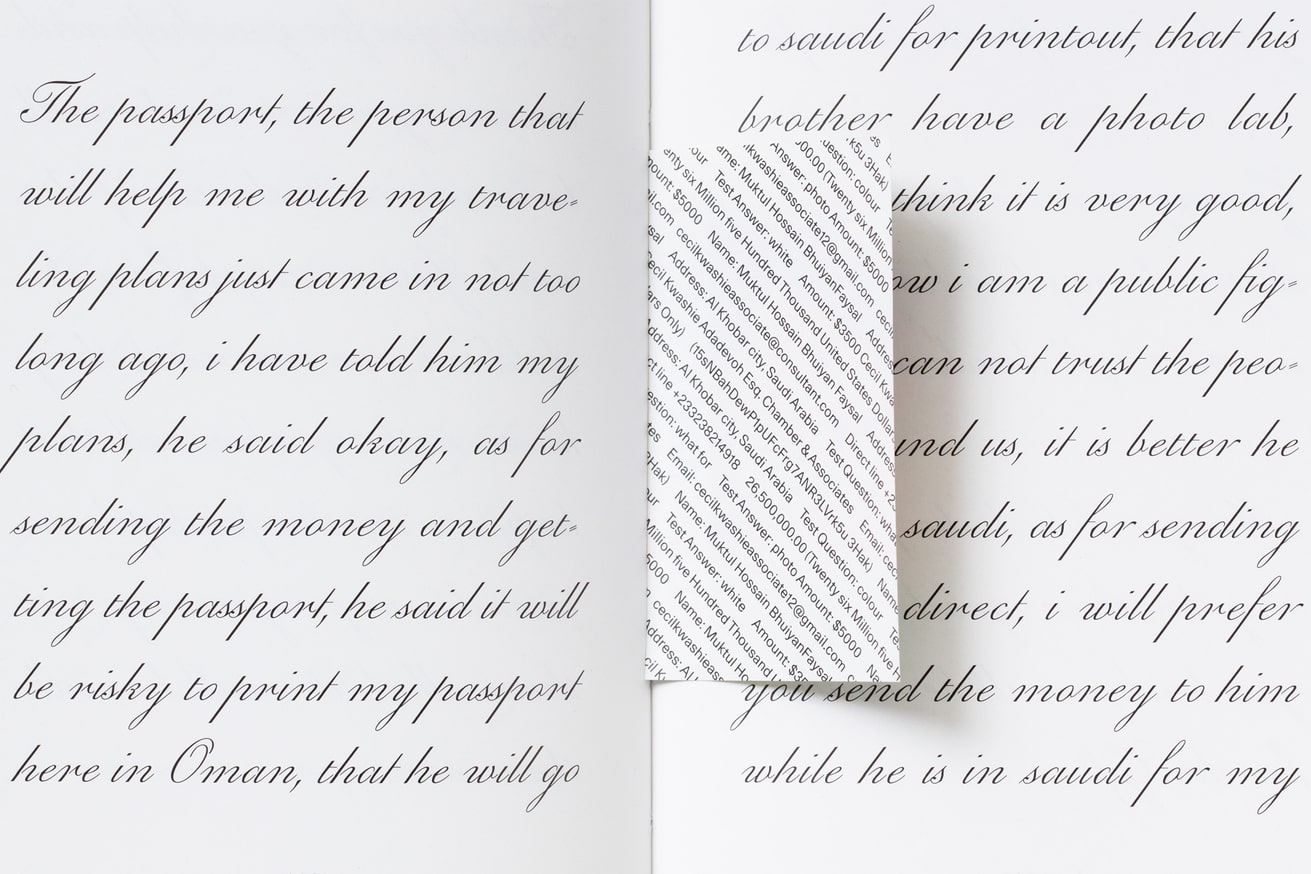 The passport, the person that
will help me with my trave-
ling plans just came in not too
long ago, i have told him my
plans, he said okay, as for
sending the money and get-
ting the passport, he said it will
be risky to print my passport
here in Oman, that he will go
to saudi for printout, that his
brother have a photo lab,
think it is very good,
i am a public fig-
can not trust the peo-
us, it is better he
saudi, as for sending
direct, i will prefer
you send the money to him
while he is in saudi for my
k5u 3Hak)
uestion: colour
00.00 (Twenty six Million
Answer: photo Amount: $5000
lkwashieassociate12@gmail.com
ame: Muktul Hossain BhuiyanFaysal Addres
our Test Answer: white Amount: $3500 Cecil Kwa
enty six Million five Hundred Thousand United States Dollar
ount: $5000 Name: Muktul Hossain Bhuiyan Faysal Address
il.com cecilkwashieassociate@consultant.com Direct line +2
sal Address: Al Khobar city, Saudi Arabia Test Question: wha
Cecil Kwashie Adadevoh Esq. Chamber & Associates Email: cec
ars Only) Name
Address: Al Khobar city, Saudi Arabia Test Question: colour Te
ct line +233238214918 26,500,000.00 (Twenty six Million five
estion: what for Test Answer: photo Amount: $5000 Na
tes Email: cecilkwashieassociate12@gmail.com
3Hak) Name: Muktul Hossain BhuiyanFaysal
our Test Answer: white Amount: $35
Million five Hundred Thousand
5000 Name: Muktul Ho
cecilkwashieass
Address: Al